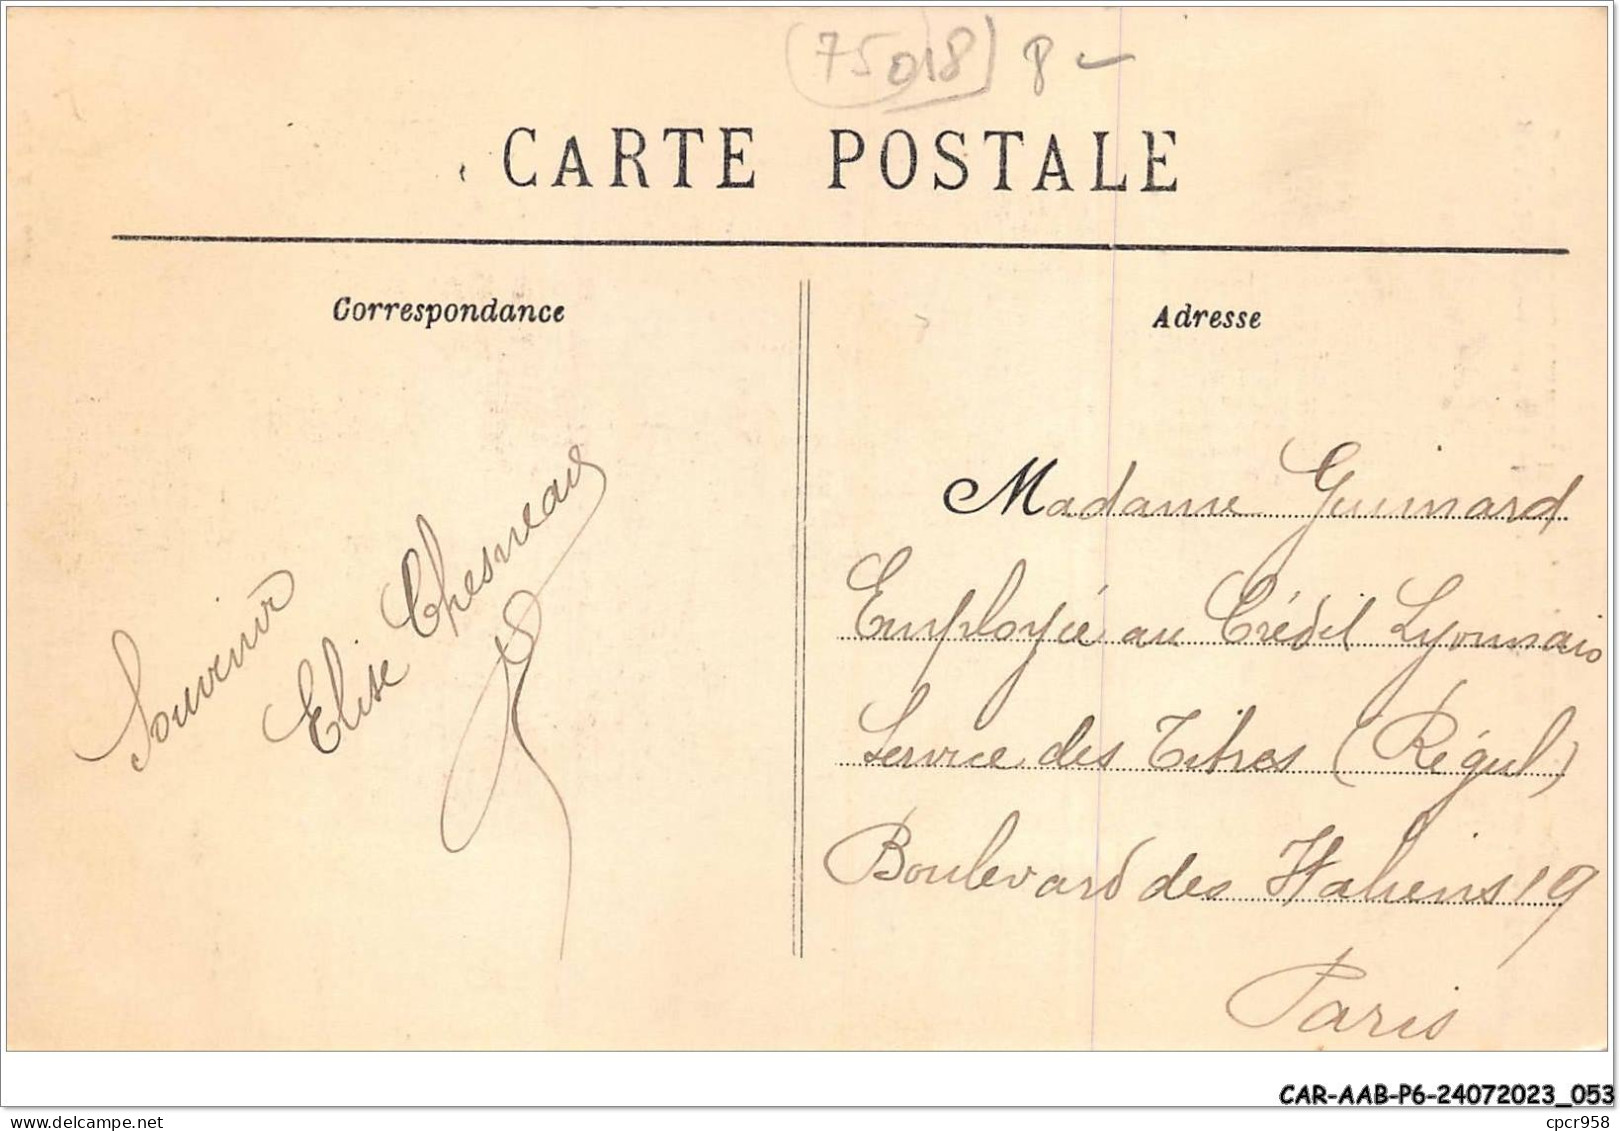 (75018) 8 -
CARTE POSTALE
Correspondance
Souvenir
Elise Chesneau
Adresse
Madame Guimard
Employée au Crédit Lyonnais
Service des Titres (Régul)
Boulevard des Italiens 19
Paris
CAR-AAB-P6-24072023_053
cpcr958